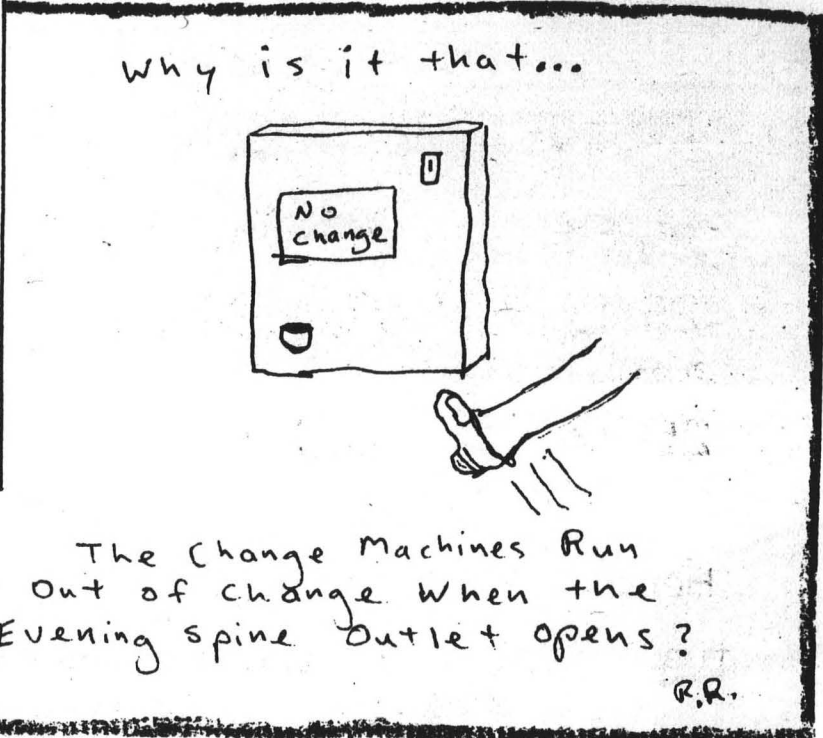 Why is it that...
No
Change
The Change Machines Run
Out of Change When the
Evening Spine Outlet Opens?
R.R.